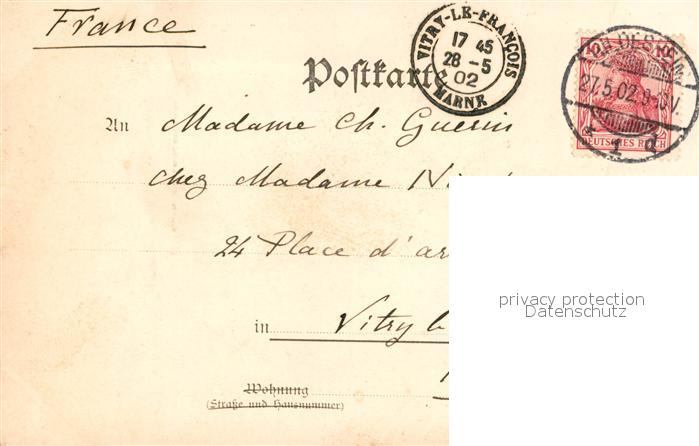 France
VITRY-LE-FRANÇOIS
17 45
28 - 5
02
MARNE
10 10
27.5.02.
1 d
DEUTSCHES REICH
Postkarte
An Madame Ch. Guerin
chez Madame
24 Place d'ar
in Vitry le
Wohnung
(Straße und Hausnummer)
privacy protection
Datenschutz